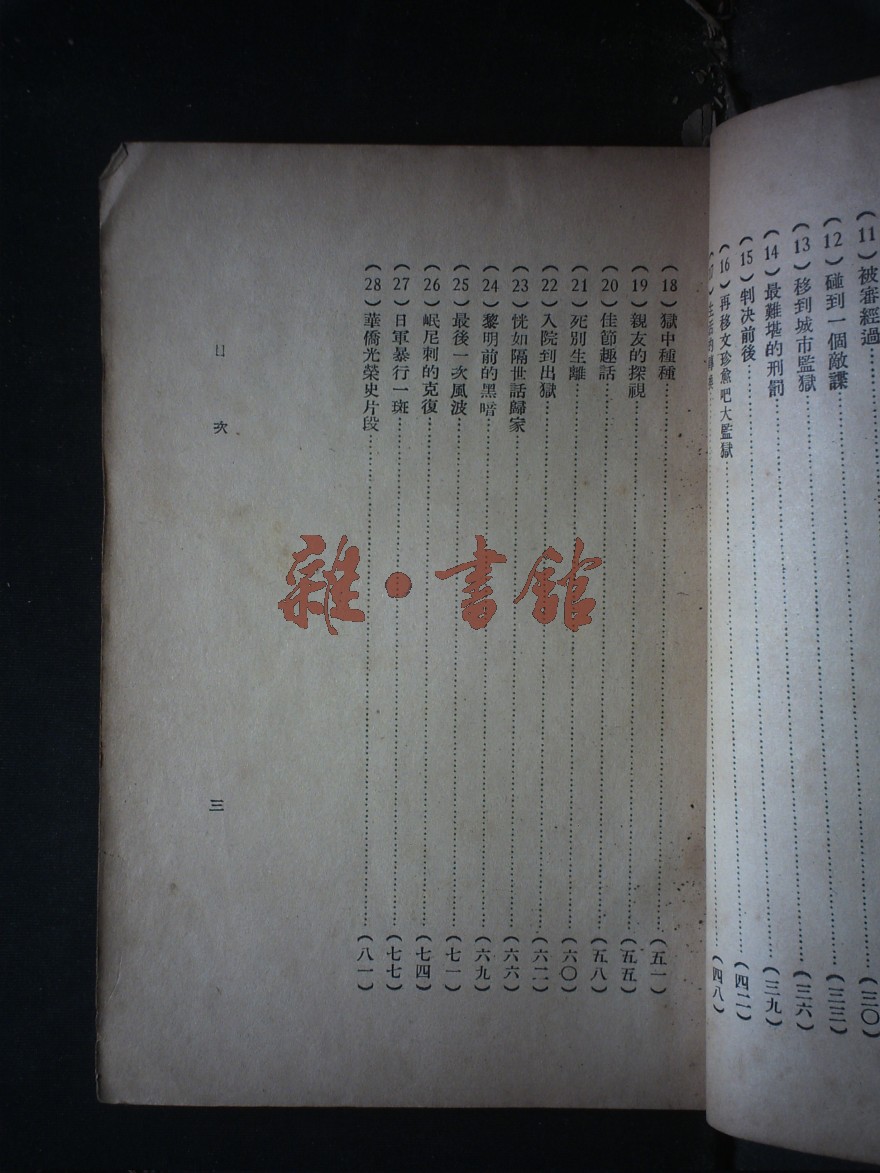 (11)被審經過……(三〇)
(12)碰到一個敵諜……(三三)
(13)移到城市監獄……(三六)
(14)最難堪的刑罰……(三九)
(15)判決前後……(四二)
(16)再移文珍愈吧大監獄……(四八)
(17)生活的
(18)獄中種種……(五一)
(19)親友的探視……(五五)
(20)佳節趣話……(五八)
(21)死別生離……(六〇)
(22)入院到出獄……(六二)
(23)恍如隔世話歸家……(六六)
(24)黎明前的黑暗……(六九)
(25)最後一次風波……(七一)
(26)岷尼刺的克復……(七四)
(27)日軍暴行一斑……(七七)
(28)華僑光榮史片段……(八一)
目次
三
雜·書館